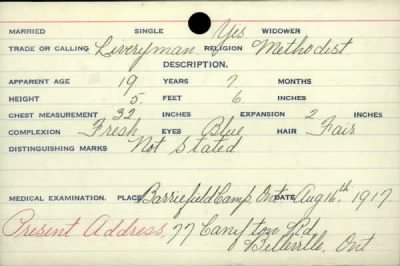 MARRIED SINGLE Yes WIDOWER
TRADE OR CALLING Liveryman RELIGION Methodist
DESCRIPTION.
APPARENT AGE 19 YEARS 7 MONTHS
HEIGHT 5 FEET 6 INCHES
CHEST MEASUREMENT 32 INCHES EXPANSION 2 INCHES
COMPLEXION Fresh EYES Blue HAIR Fair
DISTINGUISHING MARKS Not Stated
MEDICAL EXAMINATION. PLACE Barriefield Camp, Ont DATE Aug 16th, 1917
Present Address, 77 Canifton Rd,
Belleville, Ont